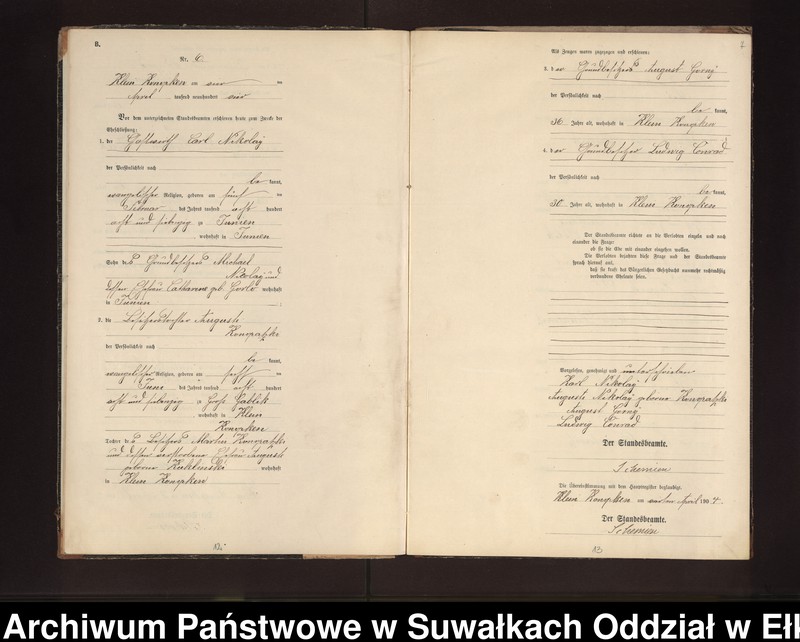 B.
Nr. 6
Klein Konopken am vier ten
April tausend neunhundert vier
Vor dem unterzeichneten Standesbeamten erschienen heute zum Zwecke der
Eheschließung:
1. der Gastwirth Carl Nikolay
der Persönlichkeit nach
be kannt,
evangelischer Religion, geboren am fünf ten
Februar des Jahres tausend acht hundert
acht und siebenzig zu
wohnhaft in
Sohn des Grundbesitzers Michael
Nikolay und
dessen Ehefrau Catharina geb. wohnhaft
in
2. die Besitzertochter Auguste
Konopatzki
der Persönlichkeit nach
be kannt,
evangelischer Religion, geboren am sechs ten
Juni des Jahres tausend acht hundert
acht und siebenzig zu Groß Gablick
wohnhaft in Klein
Konopken
Tochter des Besitzers Martin Konopatzki
und dessen verstorbene Ehefrau Auguste
geborene wohnhaft
in Klein Konopken
10
2
Als Zeugen waren zugezogen und erschienen:
3. der Grundbesitzer August Gorny
der Persönlichkeit nach
be kannt,
36 Jahre alt, wohnhaft in Klein Konopken
4. der Grundbesitzer Ludwig Conrad
der Persönlichkeit nach
be kannt,
Jahre alt, wohnhaft in Klein Konopken
Der Standesbeamte richtete an die Verlobten einzeln und nach
einander die Frage:
ob sie die Ehe mit einander eingehen wollen.
Die Verlobten bejahten diese Frage und der Standesbeamte
sprach hierauf aus,
daß sie kraft des Bürgerlichen Gesetzbuchs nunmehr rechtmäßig
verbundene Eheleute seien.
Vorgelesen, genehmigt und unterschrieben
Karl Nikolay
Auguste Nikolay geborene Konopatzki
August Gorny
Ludwig Conrad
Der Standesbeamte.
Die Übereinstimmung mit dem Hauptregister beglaubigt.
Klein Konopken am vierten April 1904.
Der Standesbeamte.
13
Archiwum Państwowe w Suwałkach Oddział w Eł